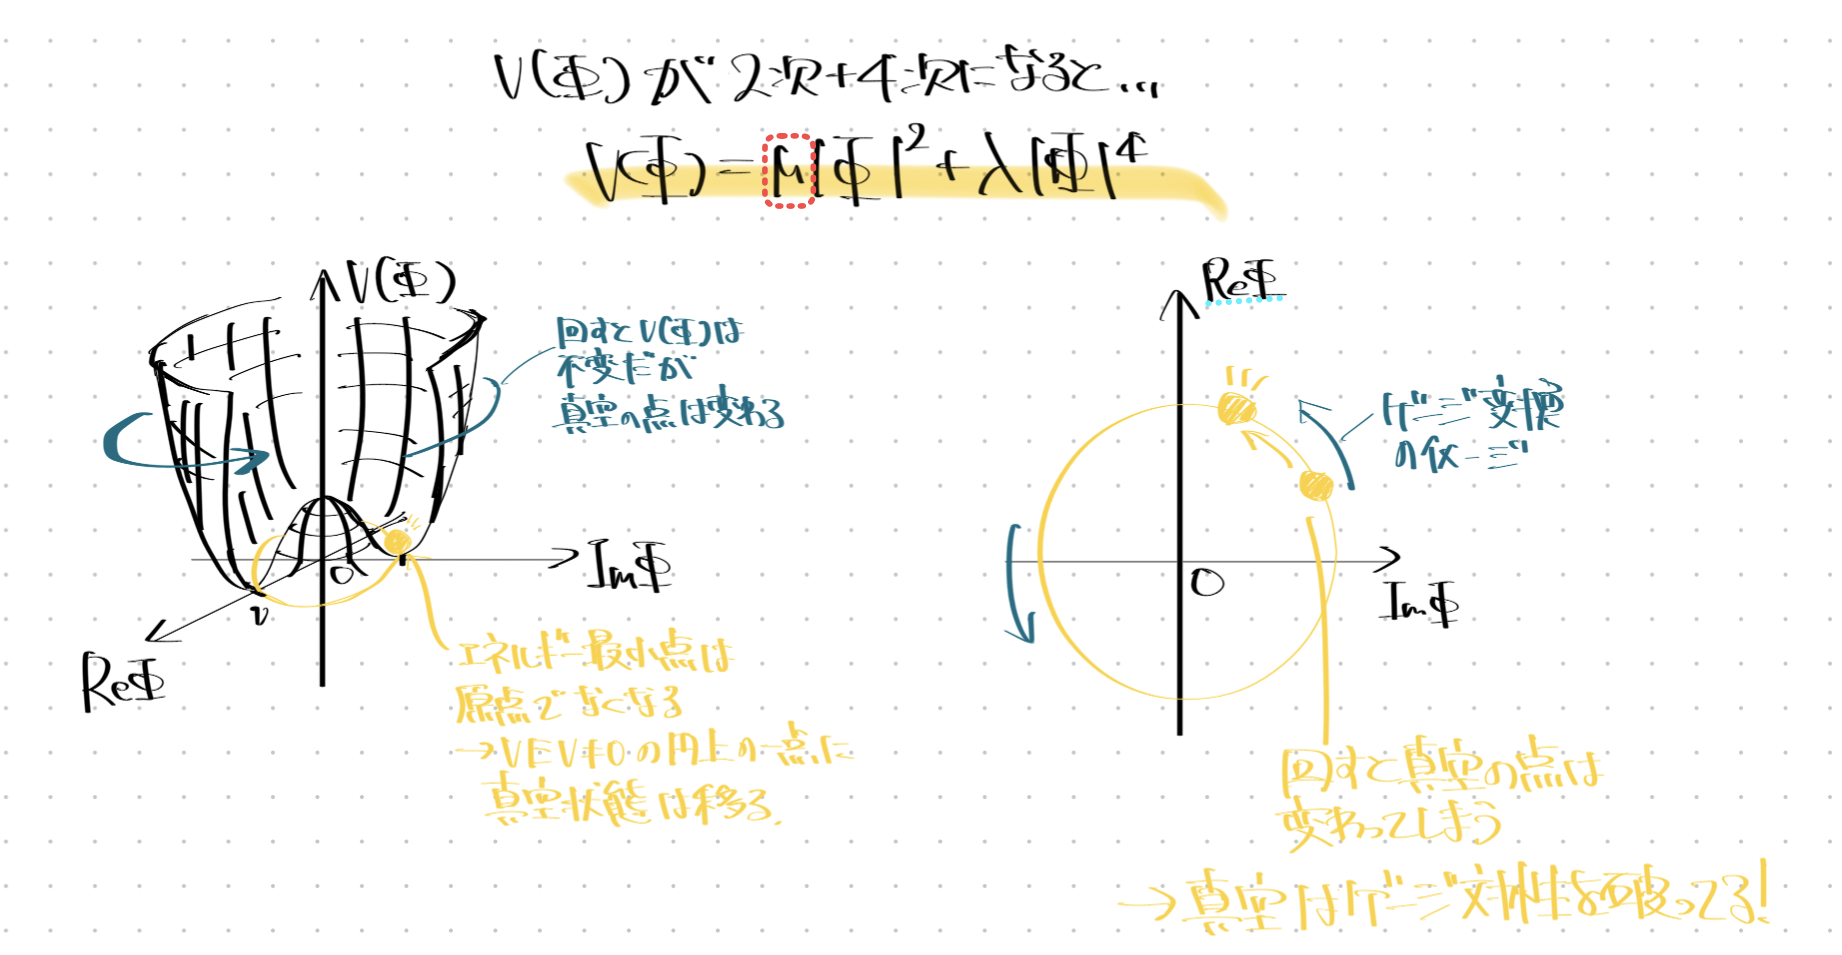 V(Φ)が2次+4次になると...
V(Φ)=μ|Φ|²+λ|Φ|⁴
V(Φ)
回すとV(Φ)は
不変だが
真空の点は変わる
O
v
ImΦ
ReΦ
エネルギー最小点は
原点でなくなる
→VEV≠0の円上の一点に
真空状態は移る.
ReΦ
ゲージ変換
のイメージ
O
ImΦ
回すと真空の点は
変わってしまう
→真空はゲージ対称性を破ってる!